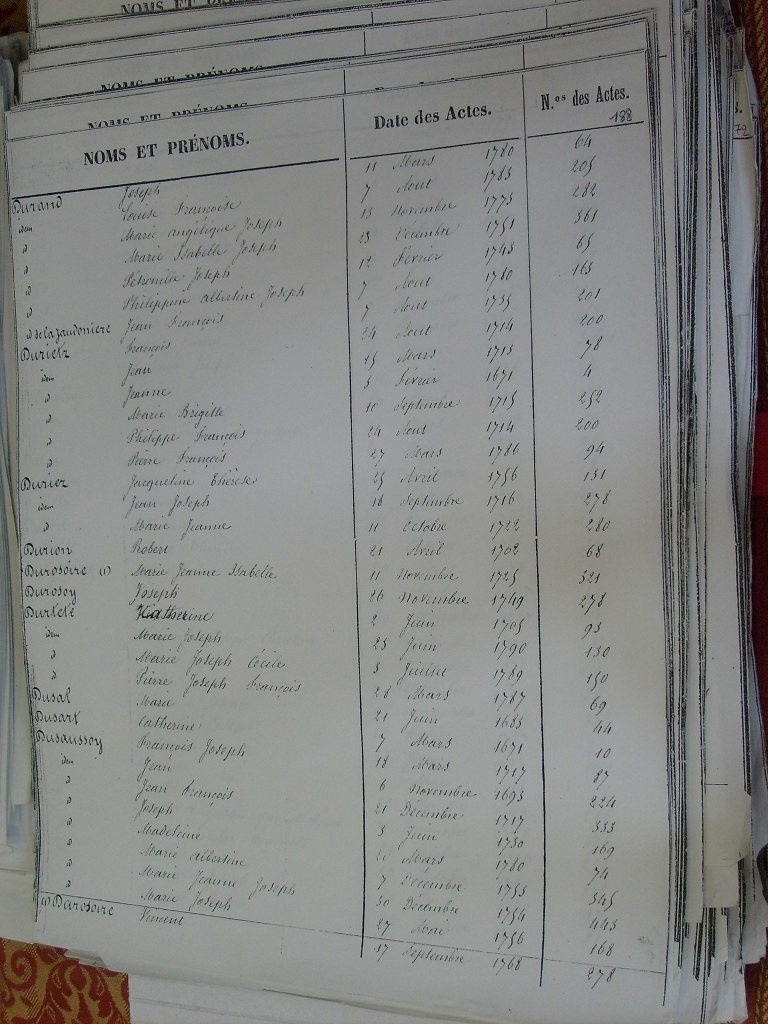 NOMS ET PRÉNOMS.
NOMS ET PRÉNOMS.
NOMS ET PRÉNOMS.
NOMS ET PRÉNOMS. Date des Actes. N.os des Actes.
188
Durand Joseph 11 Mars 1780 64
idem Louise Françoise 7 Aout 1783 205
d Marie angélique Joseph 13 Novembre 1773 282
d Marie Isabelle Joseph 23 Decembre 1751 361
d Petronille Joseph 12 Février 1743 65
d Philippine albertine Joseph 7 Aout 1780 163
d de la Jaudoniere Jean François 7 Aout 1735 201
Durietz François 24 Aout 1714 200
idem Jean 15 Mars 1713 78
d Jeanne 3 Février 1671 4
d Marie Brigitte 10 Septembre 1715 252
d Philippe François 24 Aout 1714 200
d Pierre François 27 Mars 1786 94
Duriez Jacqueline Thérèse 25 Avril 1756 131
idem Jean Joseph 18 Septembre 1716 278
d Marie Jeanne 11 Octobre 1722 280
Durion Robert 21 Avril 1702 68
Durosoire (1) Marie Jeanne Isabelle 11 Novembre 1725 321
Durosoy Joseph 26 Novembre 1749 278
Durteté Catherine 2 Juin 1705 93
idem Marie Joseph 23 Juin 1790 130
d Marie Joseph Cécile 3 Juillet 1789 150
d Pierre Joseph François 28 Mars 1787 69
Dusal Marie 21 Juin 1683 44
Dusart Catherine 7 Mars 1671 10
Dusaussoy François Joseph 18 Mars 1717 87
idem Jean 6 Novembre 1693 224
d Jean François 21 Décembre 1717 333
d Joseph 3 Juin 1730 169
d Madeleine Mars 1780 74
d Marie albertine 7 Décembre 1753 345
d Marie Jeanne Joseph 30 Décembre 1754 443
d Marie Joseph 27 Mai 1756 168
(1) Darosoire Vincent 17 Septembre 1768 278